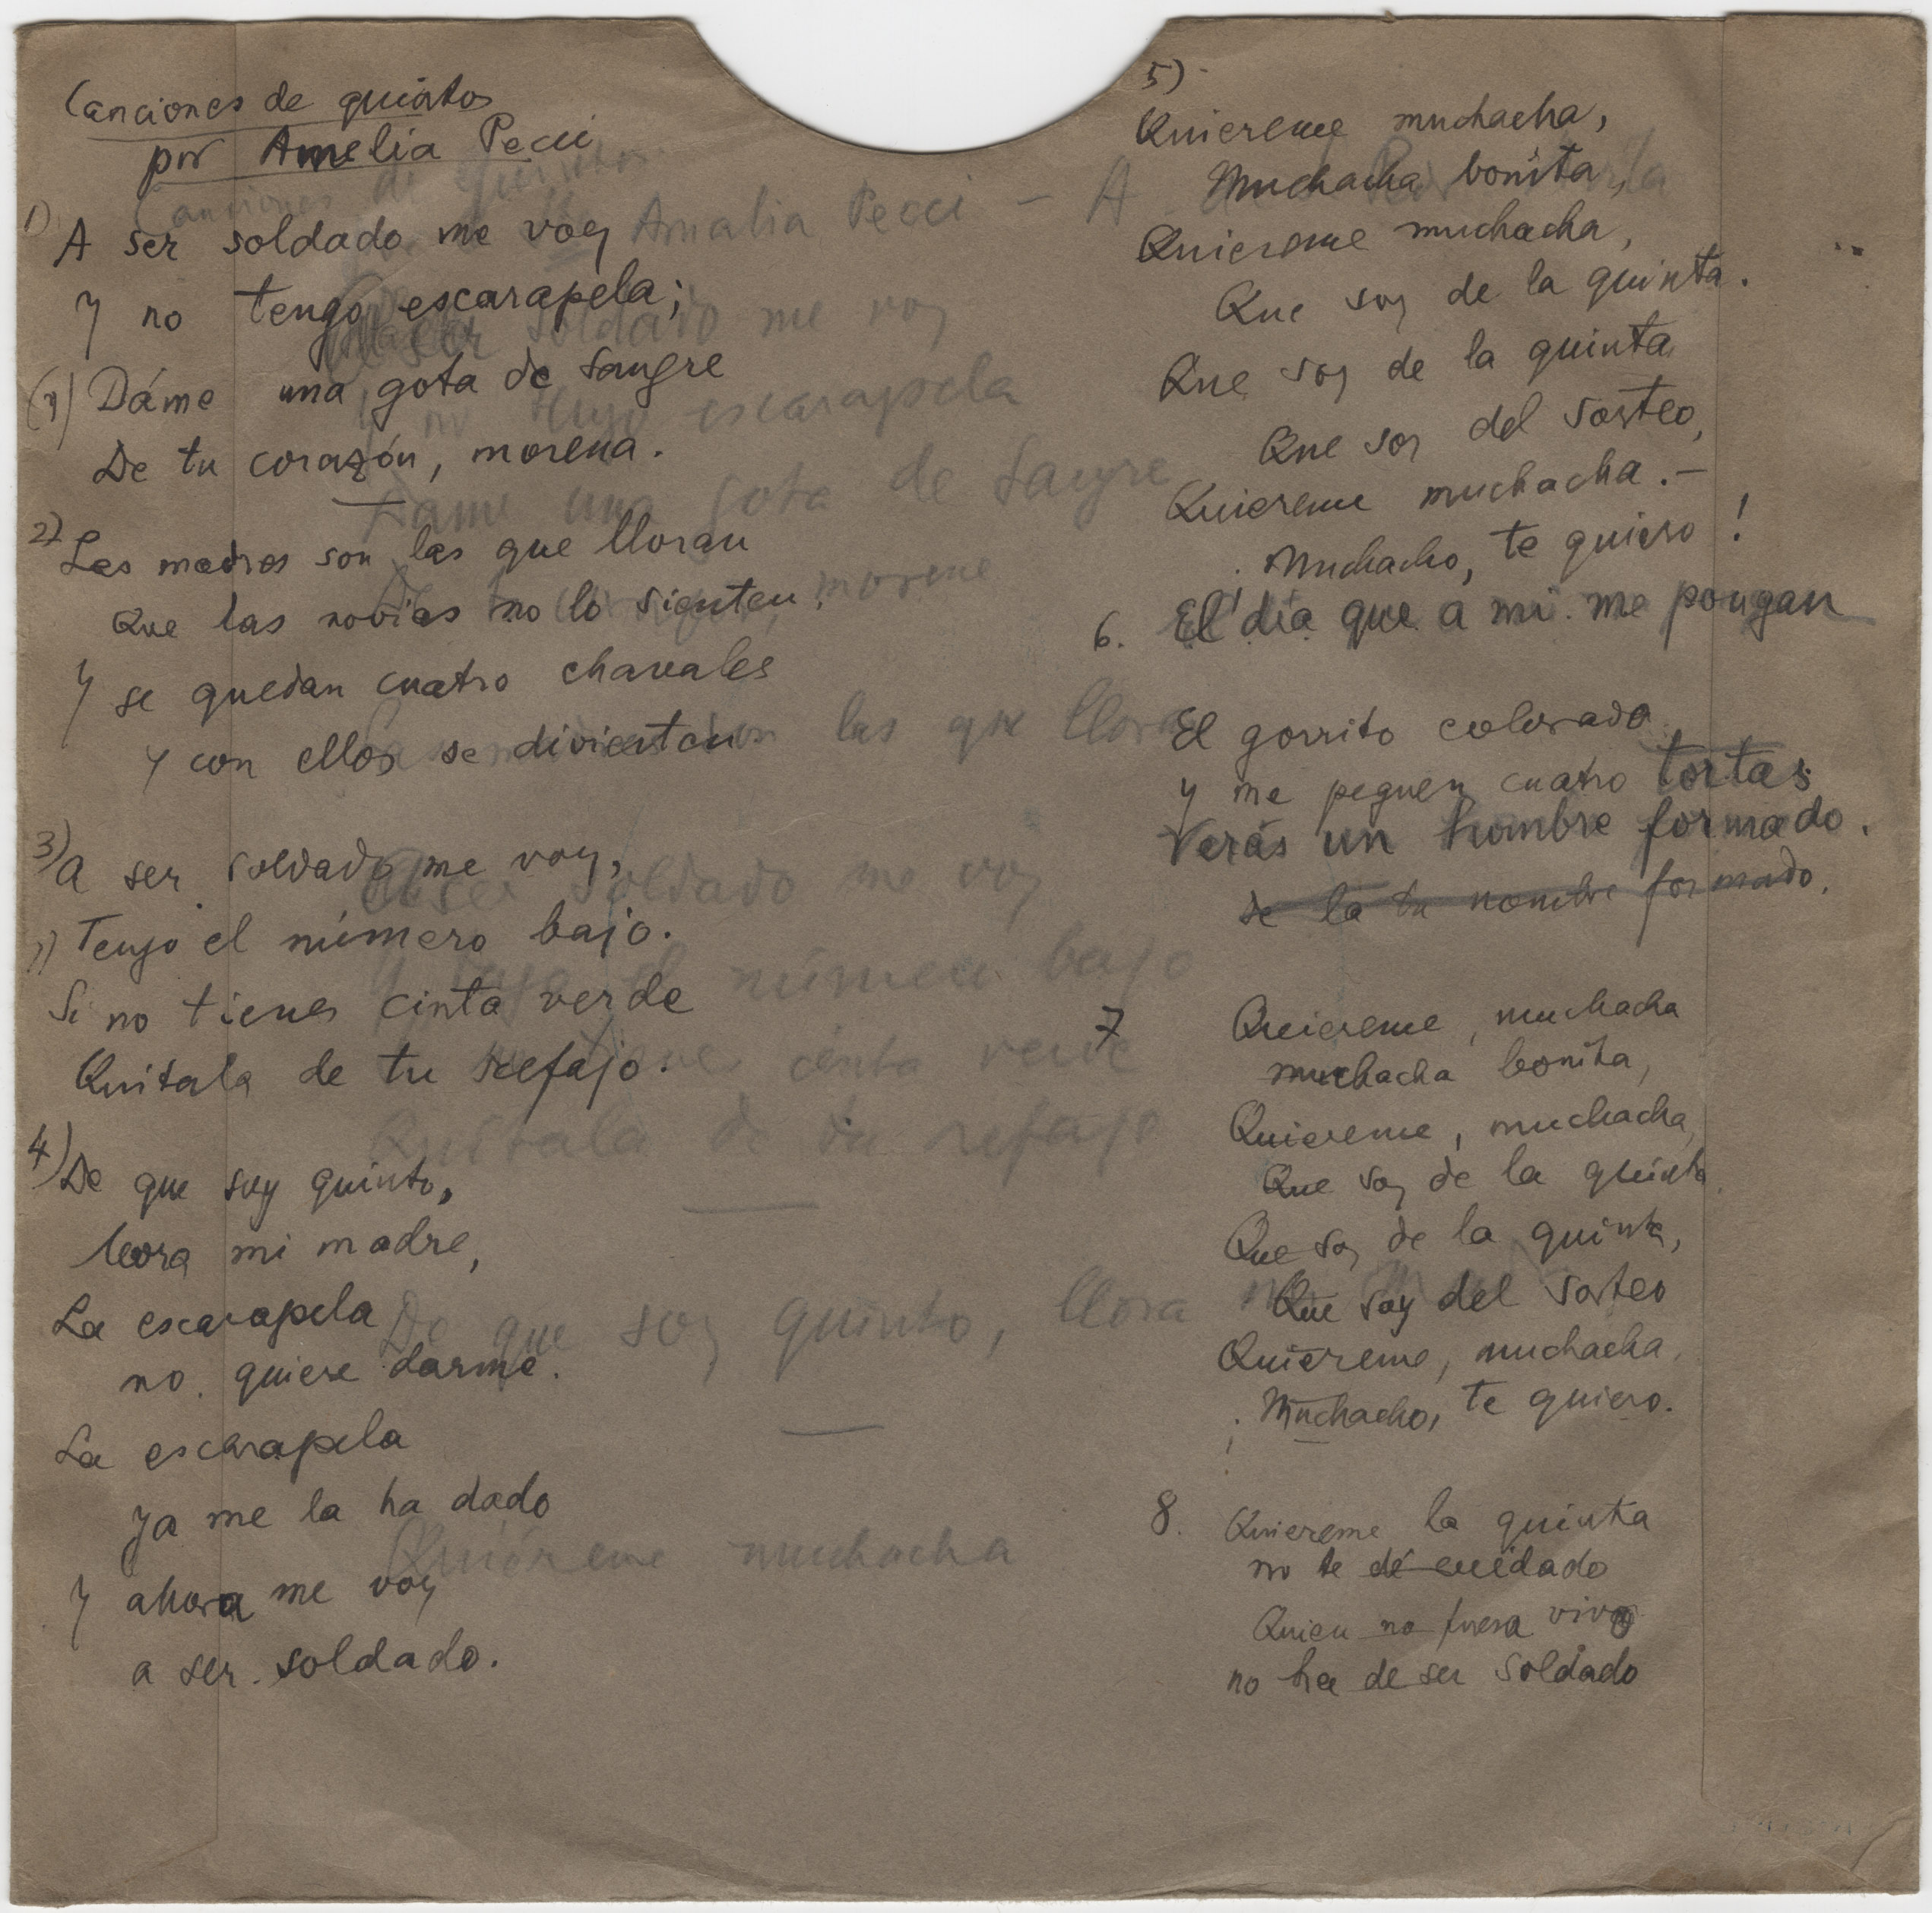 Canciones de quintos
por Amelia Pecci
1) A ser soldado me voy
Y no tengo escarapela;
Dáme una gota de sangre
De tu corazón, morena.
2) Las madres son las que lloran
Que las novias no lo sienten;
Y se quedan cuatro chavales
Y con ellos se divierten
3) A ser soldado me voy,
Tengo el número bajo.
Si no tienes cinta verde
Quitala de tu refajo.
4) De que soy quinto,
llora mi madre,
La escarapela
no quiere darme.
La escarapela
Ya me la ha dado
Y ahora me voy
a ser soldado.
5)
Quiereme muchacha,
Muchacha bonita,
Quiereme muchacha,
Que soy de la quinta.
Que soy de la quinta
Que soy del sorteo,
Quiereme muchacha.-
Muchacho, te quiero!
6. El día que a mi me pongan
El gorrito colorado
y me peguen cuatro tortas
Verás un hombre formado.
de la tu nombre formado.
7 Quiereme, muchacha
muchacha bonita,
Quiereme, muchacha,
Que soy de la quinta
Que soy de la quinta,
Que soy del sorteo
Quiereme, muchacha,
Muchacho, te quiero.
8. Quiereme la quinta
no te dé cuidado
Quien no fuera vivo
no ha de ser soldado
Canciones de quintos
Amalia Pecci - A
soldado me voy
no tengo escarapela
Dame una gota de sangre
morena
las que llora
A ser soldado me voy
número bajo
cinta verde
Quitala de tu refajo
De que soy quinto, llora
Quiéreme muchacha